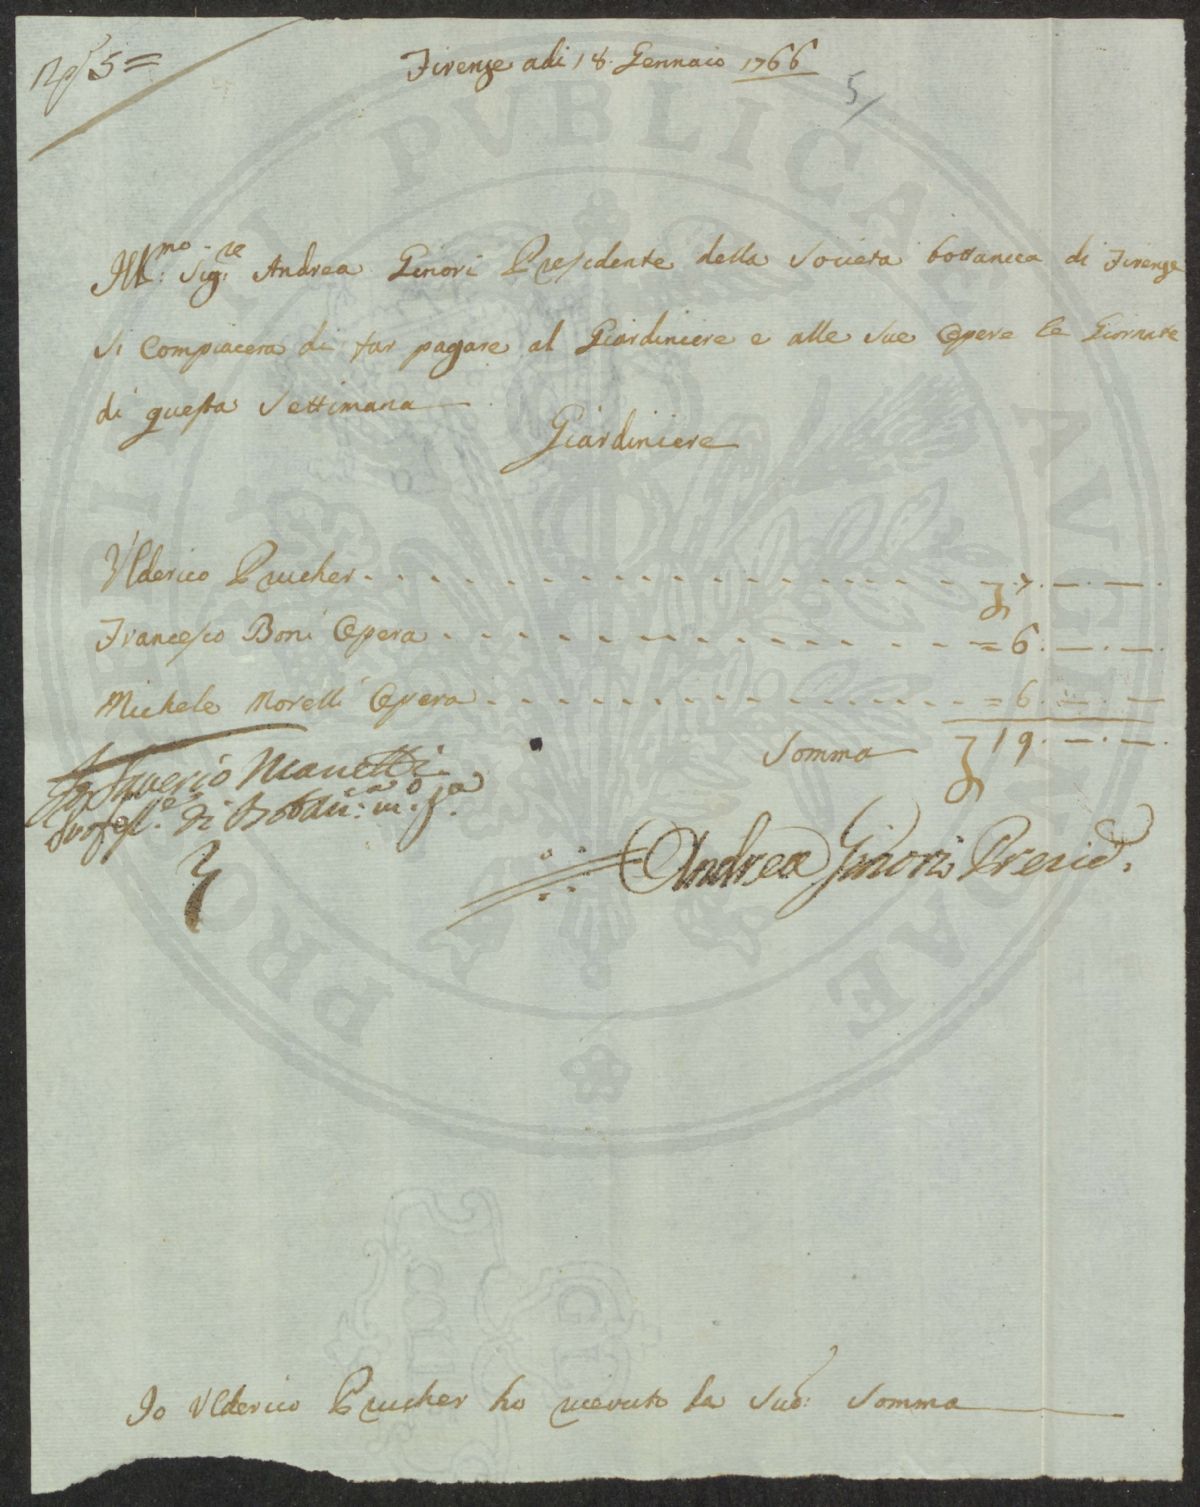 No 5=
Firenze adi 18. Gennaio 1766
5/
Ill:mo Sig:re Andrea Ginori Presidente della Societa bottanica di Firenze
si Compiacera di far pagare al Giardiniere e alle sue Opere le Giornate
di questa Settimana
Giardiniere
Ulderico Prucher - - - - - - - - - - - - - - - - - - - 7. — . — .
Francesco Boni Opera - - - - - - - - - - - - - - - = 6. — . — .
Michele Morelli Opera - - - - - - - - - - - - - - - = 6. — . —
Somma 19. — . — .
Saverio Manetti
Profess.e di Bottan:ca
Andrea Ginori Presid.
Io Ulderico Prucher ho ricevuto la Sud: Somma
PROPRI PUBLICAE AUGENDAE